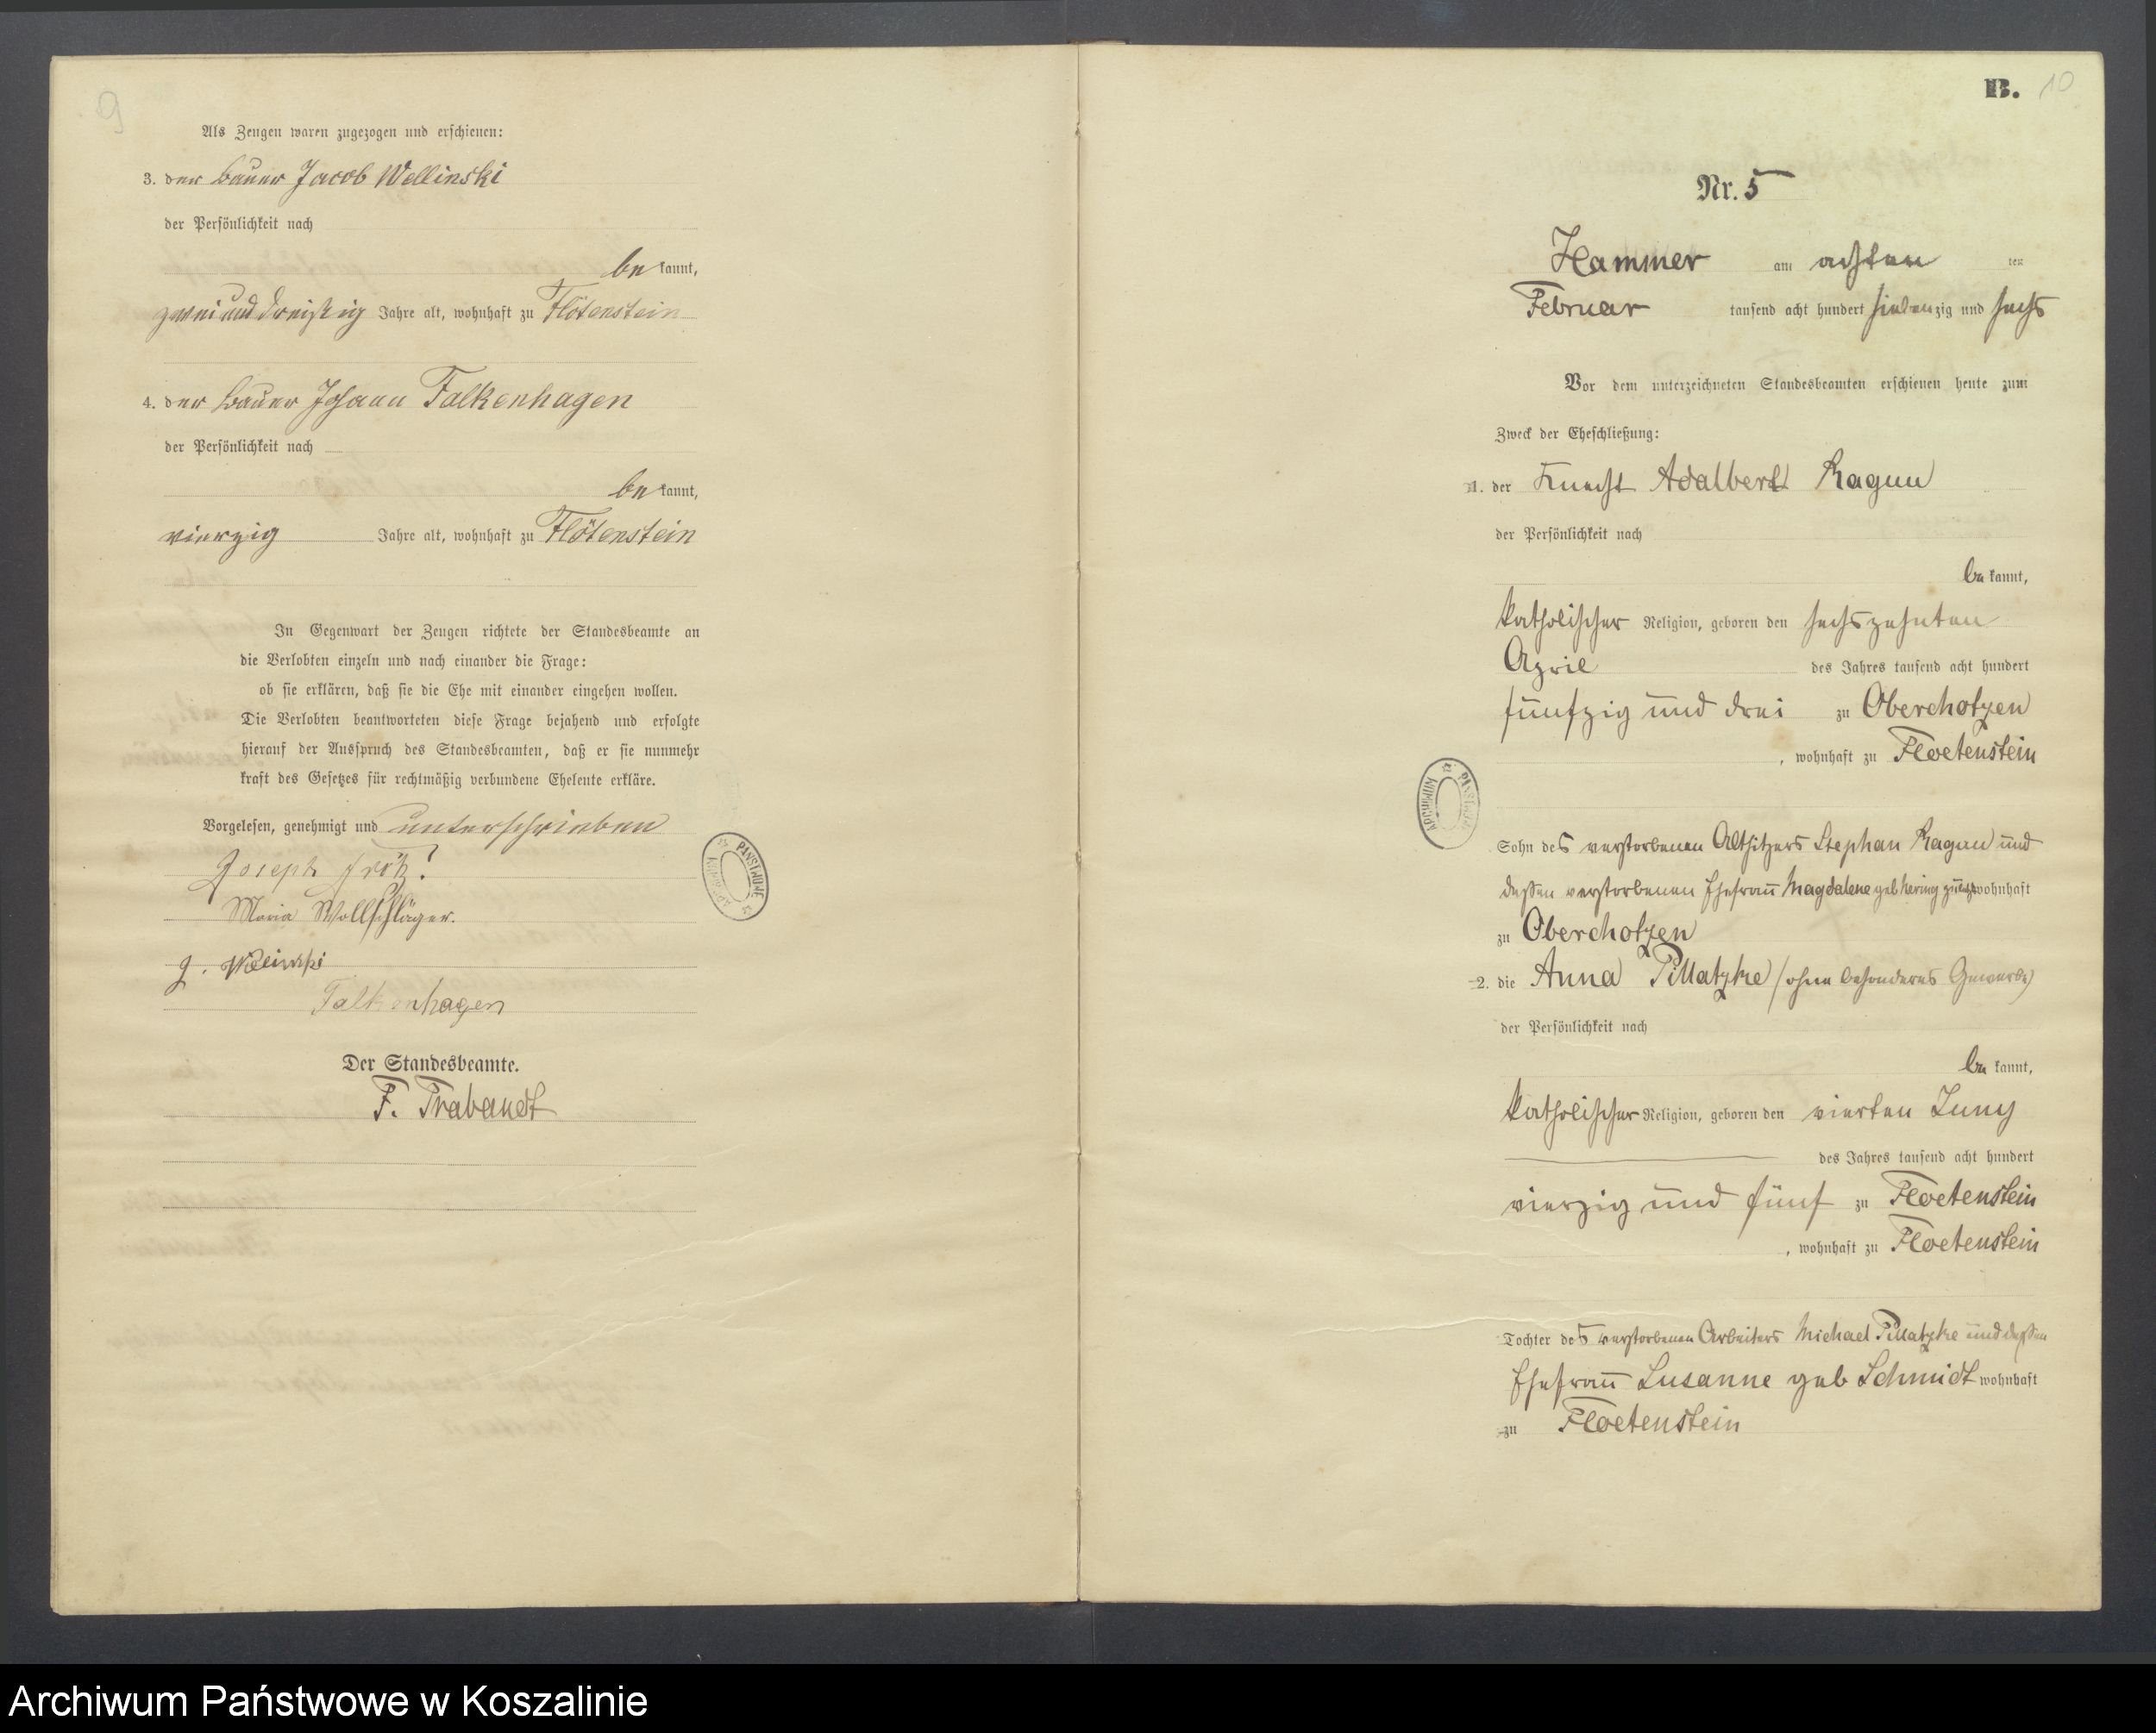 9
Als Zeugen waren zugezogen und erschienen:
3. der Bauer Jacob Wellinski
der Persönlichkeit nach
be kannt,
zwei und dreißig Jahre alt, wohnhaft zu Flötenstein
4. der Bauer Johann Falkenhagen
der Persönlichkeit nach
be kannt,
vierzig Jahre alt, wohnhaft zu Flötenstein
In Gegenwart der Zeugen richtete der Standesbeamte an
die Verlobten einzeln und nach einander die Frage:
ob sie erklären, daß sie die Ehe mit einander eingehen wollen.
Die Verlobten beantworteten diese Frage bejahend und erfolgte
hierauf der Ausspruch des Standesbeamten, daß er sie nunmehr
kraft des Gesetzes für rechtmäßig verbundene Eheleute erkläre.
Vorgelesen, genehmigt und unterschrieben
Joseph
Maria Wollschläger.
J.
Falkenhagen
Der Standesbeamte.
F. Trabandt
ARCHIWUM PAŃSTWOWE
B. 10
Nr. 5
Hammer am achten ten
Februar tausend acht hundert siebenzig und sechs
Vor dem unterzeichneten Standesbeamten erschienen heute zum
Zweck der Eheschließung:
1. der Knecht Adalbert Ragun
der Persönlichkeit nach
be kannt,
katholischer Religion, geboren den sechszehnten
April des Jahres tausend acht hundert
fünfzig und drei zu Oberchotzen
, wohnhaft zu Floetenstein
ARCHIWUM PAŃSTWOWE
Sohn des verstorbenen Altsitzers Stephan Ragun und
dessen verstorbenen Ehefrau Magdalene geb Hering zuletzt wohnhaft
zu Oberchotzen
2. die Anna Pillatzke (ohne besonderes Gewerbe)
der Persönlichkeit nach
be kannt,
katholischer Religion, geboren den vierten Juny
des Jahres tausend acht hundert
vierzig und fünf zu Floetenstein
, wohnhaft zu Floetenstein
Tochter des verstorbenen Arbeiters Michael Pillatzke und dessen
Ehefrau Susanne geb Schmidt wohnhaft
zu Floetenstein
Archiwum Państwowe w Koszalinie